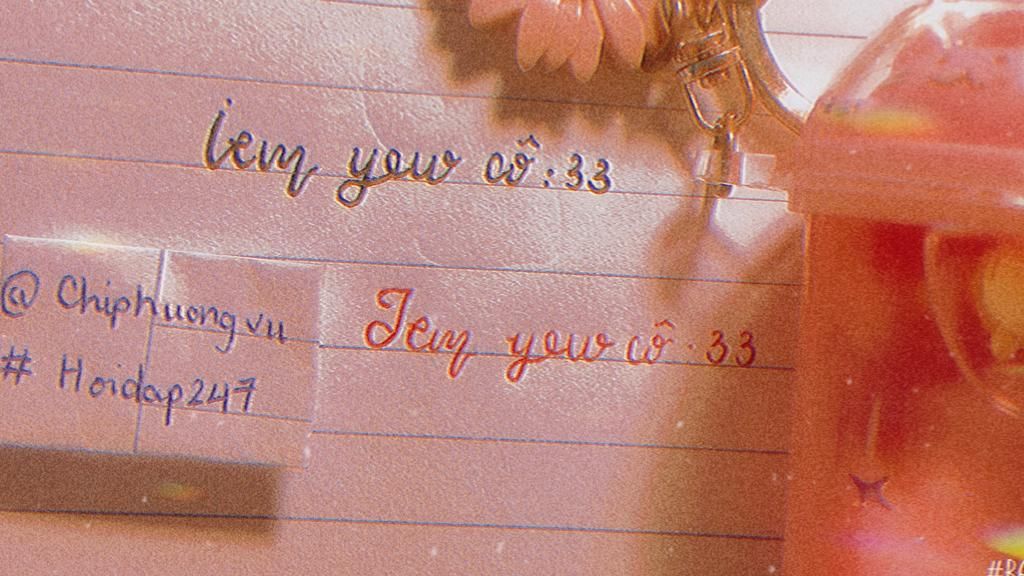 iem yew cô :33
@ Chiphuongvu
# Hoidap247
Iem yew cô :33